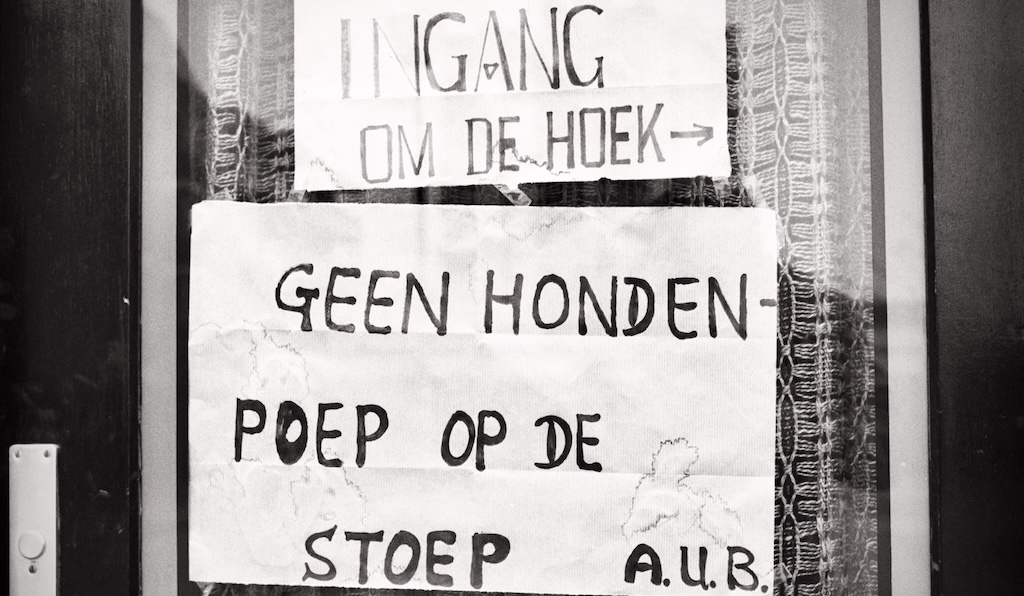 INGANG
OM DE HOEK →
GEEN HONDEN-
POEP OP DE
STOEP A.U.B.